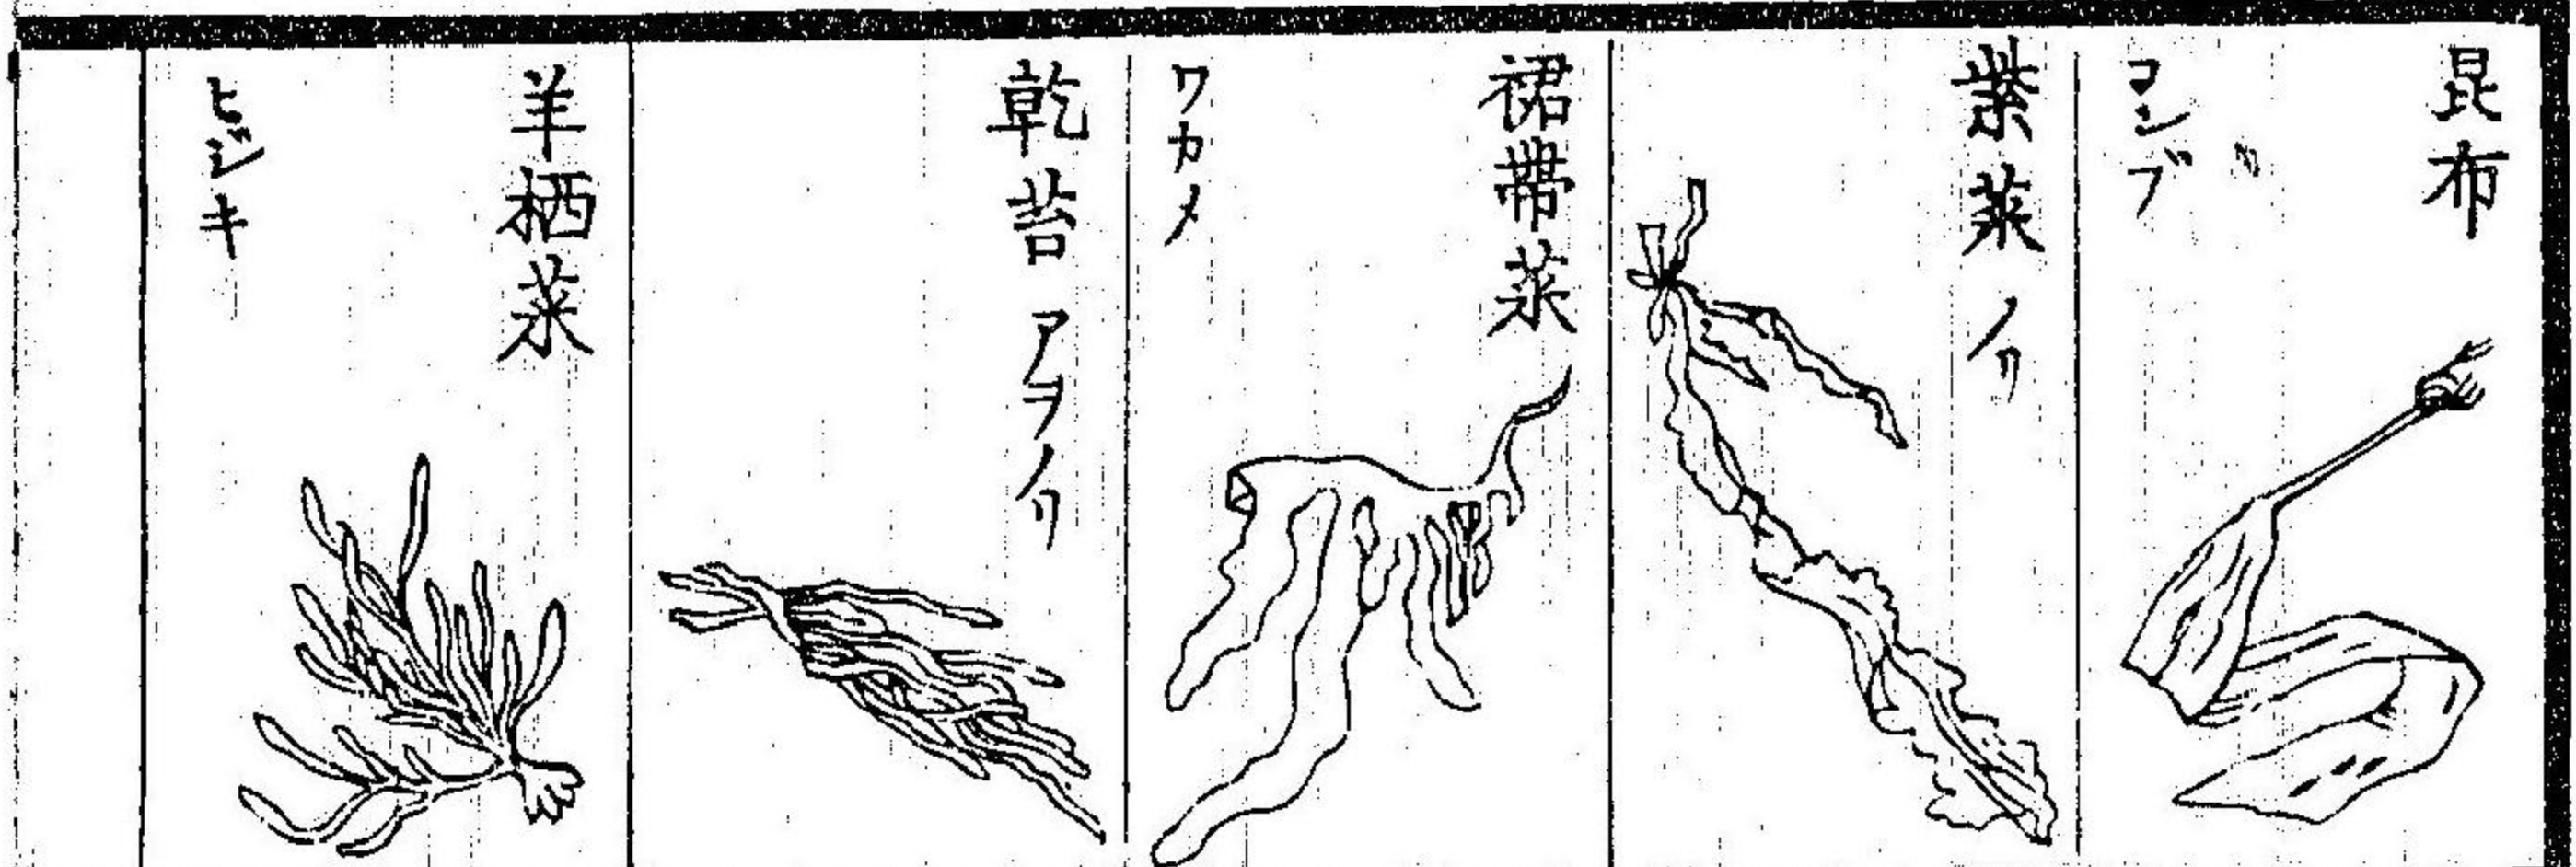 昆布
コンブ
紫菜 ノリ
裙帶菜
ワカメ
乾苔 アヲノリ
羊栖菜
ヒジキ